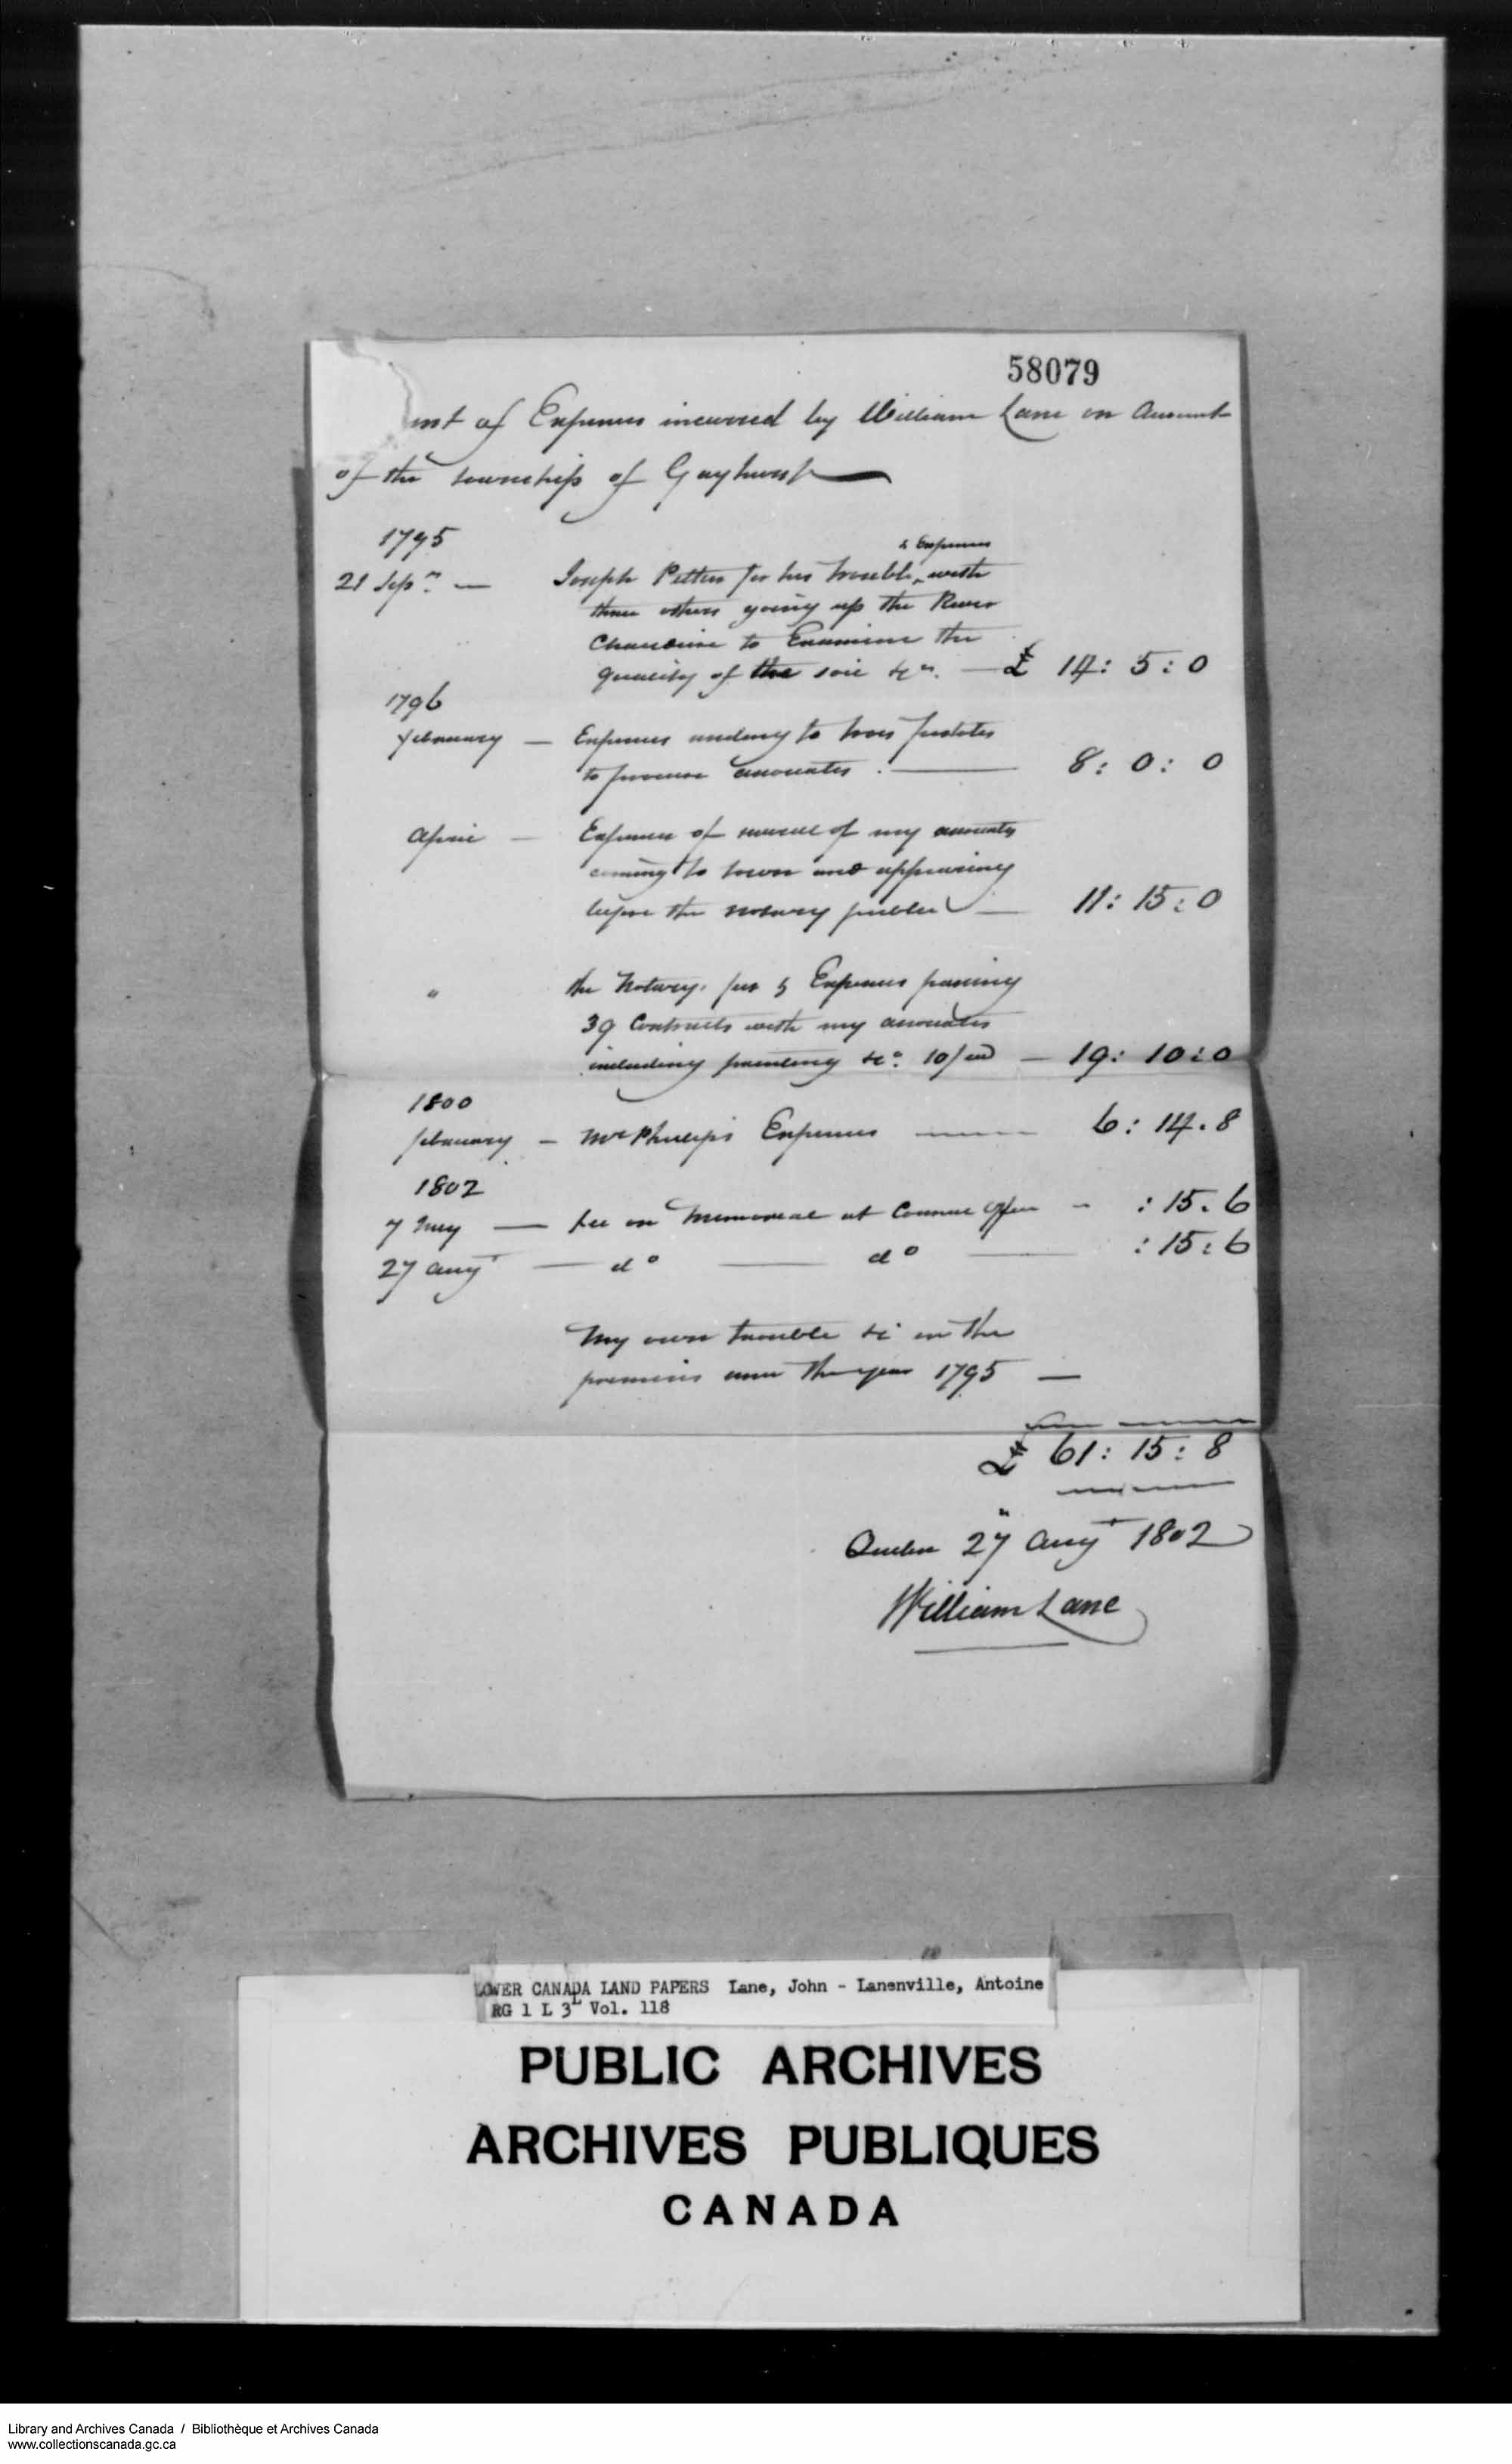 58079
unt of Expences incurred by William Lane on Account
of the township of Gayhurst
1795
& Expences
21 Sepr. — Joseph for his trouble, with
three others going up the River
Chaudiere to Examine the
quality of the soil &ca. — £ 14: 5: 0
1796
february — Expences sending to
to procure associates. — 8: 0: 0
April — Expence of several of my associates
coming to town and appearing
before the notary public — 11: 15: 0
" the Notary. fees & Expences passing
39 Contracts with my associates
including printing &c. 10/ — 19: 10: 0
1800
february — Mr Philips Expences — 6: 14. 8
1802
7 — fee on Memorial at Council Office — : 15. 6
27 augt — do — do — : 15: 6
My own trouble &c in the
premises since the year 1795 —
£ 61: 15: 8
Quebec 27 augt 1802
William Lane
LOWER CANADA LAND PAPERS Lane, John - Lanenville, Antoine
RG 1 L 3L Vol. 118
PUBLIC ARCHIVES
ARCHIVES PUBLIQUES
CANADA
Library and Archives Canada / Bibliothèque et Archives Canada
www.collectionscanada.gc.ca